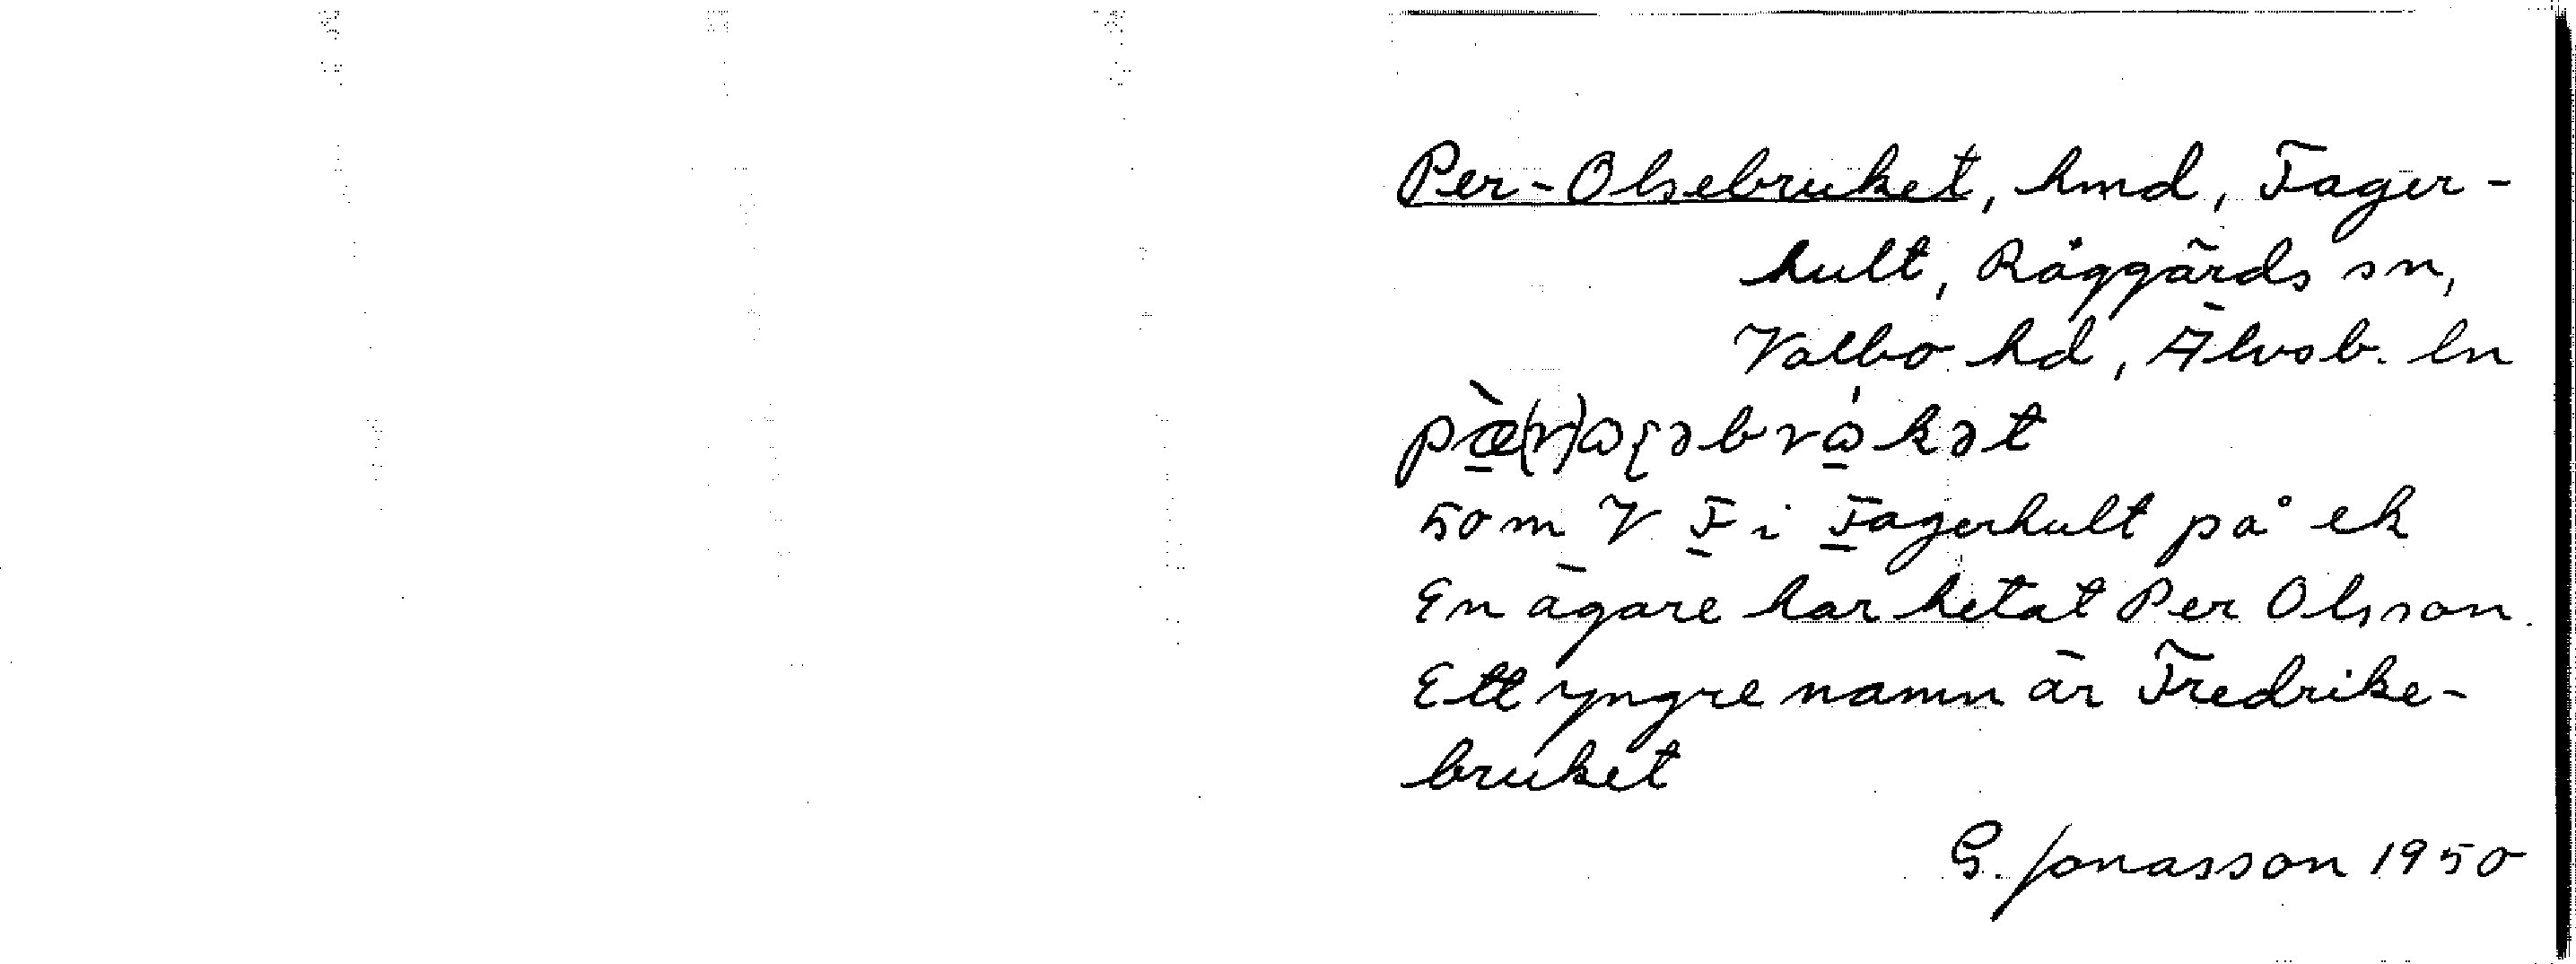 Per-Olsebruket, hmd, Fager-
hult, Råggärds sn,
Valbo hd, Älvsb. ln
50 m V F i Fagerhult på ek
En ägare har hetat Per Olsson.
Ett yngre namn är Fredrike-
bruket
G. Jonasson 1950